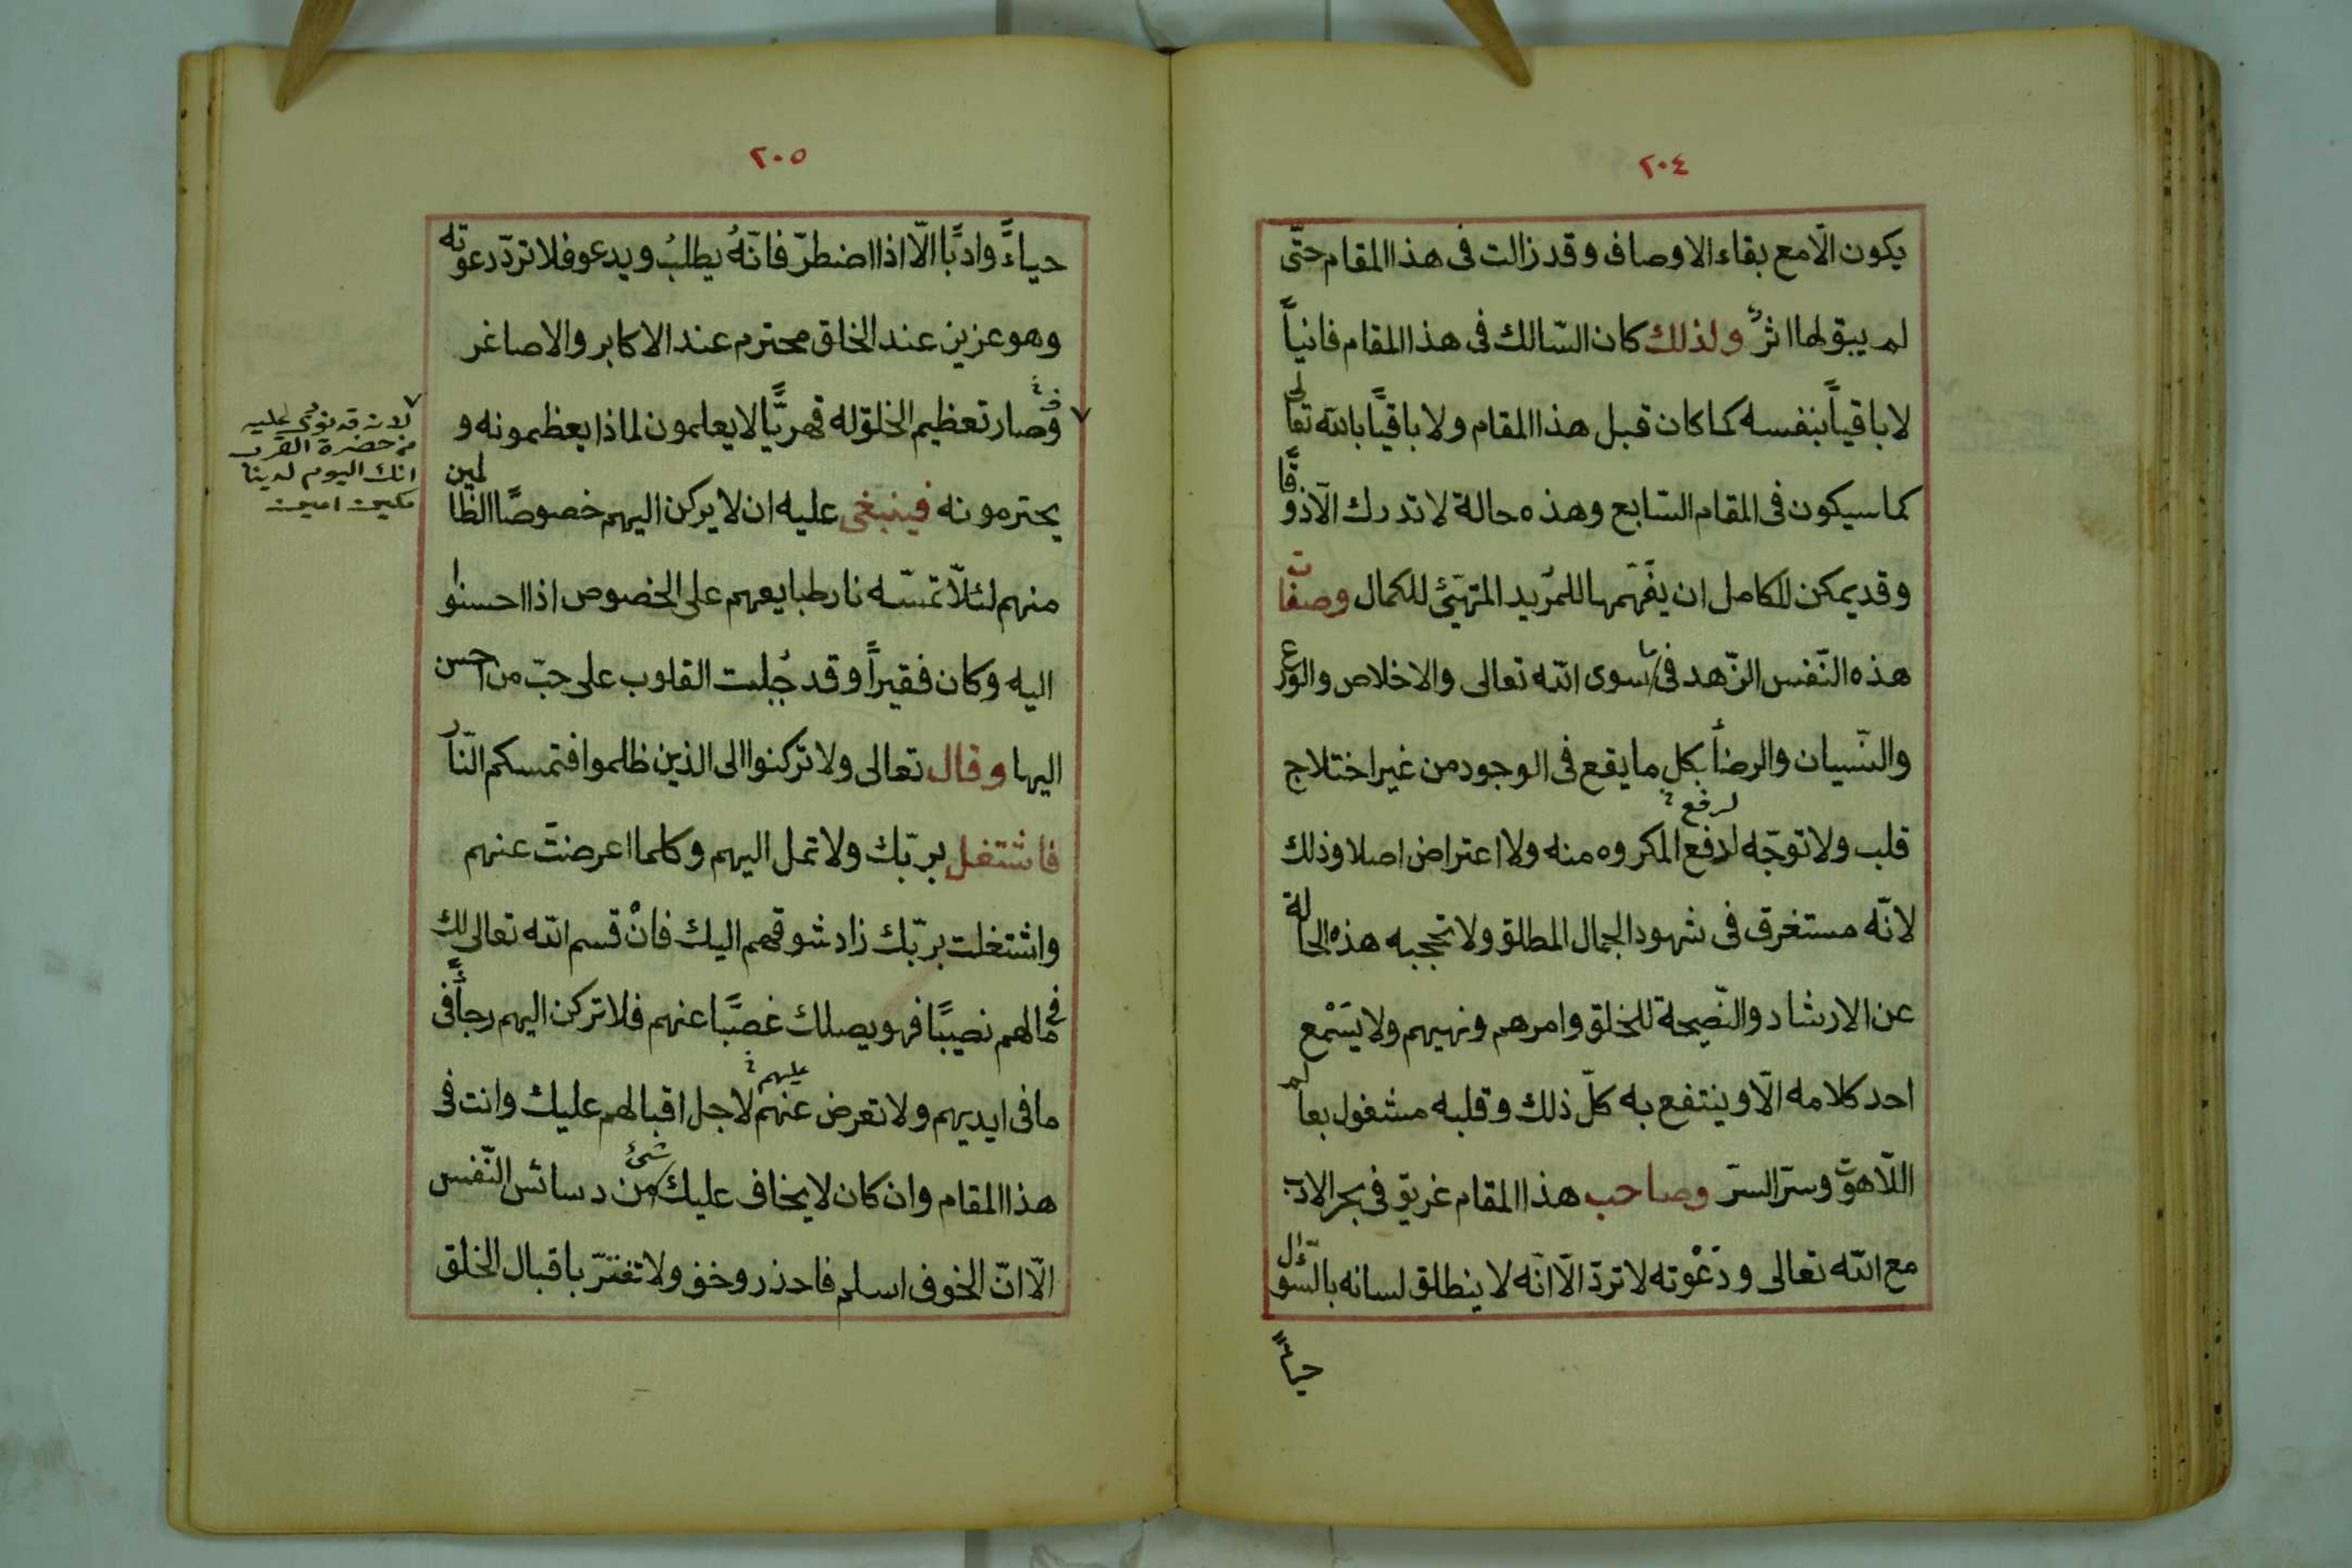 ٢٠٤
يكون الّا مع بقاء الاوصاف وقد زالت فى هذا المقام حتّى
لم يبق لها اثرٌ ولذلك كان السّالك فى هذا المقام فانياً
لا باقياً بنفسه كما كان قبل هذا المقام ولا باقيًا بالله تعالى
كما سيكون فى المقام السّابع وهذه حالة لا تدرك الّا ذوقًا
وقد يمكن للكامل ان يفَهّمها للمُريد المتهيّئ للكمال وصفات
هذه النّفس الزّهد فى ما سوى الله تعالى والاخلاص والورع
والنّسيان والرضأ بكل ما يقع فى الوجود من غير اختلاج
لرفع
قلب ولا توجّه لدفع المكروه منه ولا اعتراض اصلا وذلك
لانّه مستغرق فى شهود الجمال المطلق ولا تحجبه هذه الحالة
عن الارشاد والنّصيحة للخلق وامرهم ونهيهم ولا يَسْمع
احد كلامه الّا وينتفع به كلّ ذلك وقلبه مشغول بعالم
اللّاهوت وسرّ السرّ وصاحب هذا المقام غريق فى بحر الادب
مع الله تعالى ودَعْوته لا تردّ الّا انّه لا ينطلق لسانه بالسّؤال
حياءً
٢٠٥
حياءً وادبًا الّا اذا اضطرّ فانّهُ يطلبُ ويدعو فلا تردّ دعوته
وهو عزيز عند الخلق محترم عند الاكابر والاصاغر
وصار تعظيم الخلق له قهريًّا لا يعلمون لماذا يعظمونه و
يحترمونه فينبغى عليه ان لا يركن اليهم خصوصًا الظالمين
منهم لئلّا تمسّه نار طبايعهم على الخصوص اذا احسنوا
اليه وكان فقيراً وقد جُبلت القلوب على حبّ من احسن
اليها وقال تعالى ولا تركنوا الى الذين ظلموا فتمسكم النّار
فاشتغل بربّك ولا تمل اليهم وكلما اعرضتَ عنهم
واشتغلت بربّك زاد شوقهم اليك فانْ قسم الله تعالى لك
فى مالهم نصيبًا فهو يصلك غصبًا عنهم فلا تركن اليهم رجأً فى
عليهم
ما فى ايديهم ولا تعرض عنهم لاجل اقبالهم عليك وانت فى
هذا المقام وان كان لا يخاف عليك شئ من دسائس النّفس
الّا انّ الخوف اسلم فاحذر وخف ولا تغترّ باقبال الخلق
لانه قد نودى عليه
من حضرة القرب
انك اليوم لدينا
مكين امين